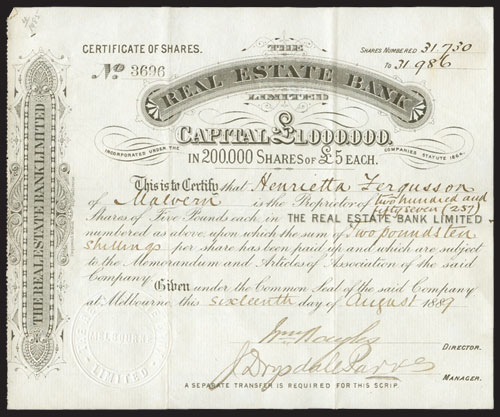 CERTIFICATE OF SHARES.
SHARES NUMBERED 31.730
TO 31.986
No 3696
THE
REAL ESTATE BANK
LIMITED
CAPITAL £1,000,000,
INCORPORATED UNDER THE COMPANIES STATUTE 1864.
IN 200,000 SHARES OF £5 EACH.
This is to Certify that Henrietta Fergusson
of Malvern is the Proprietor of two hundred and
fifty seven (257)
Shares of Five Pounds each in THE REAL ESTATE BANK LIMITED
numbered as above, upon which the sum of Two pounds ten
shillings per share has been paid up and which are subject
to the Memorandum and Articles of Association of the said
Company.
Given under the Common Seal of the said Company
at Melbourne, this sixteenth day of August 1889
DIRECTOR.
J. Drysdale
MANAGER.
A SEPARATE TRANSFER IS REQUIRED FOR THIS SCRIP.
THE REAL ESTATE BANK LIMITED
MELBOURNE
LIMITED